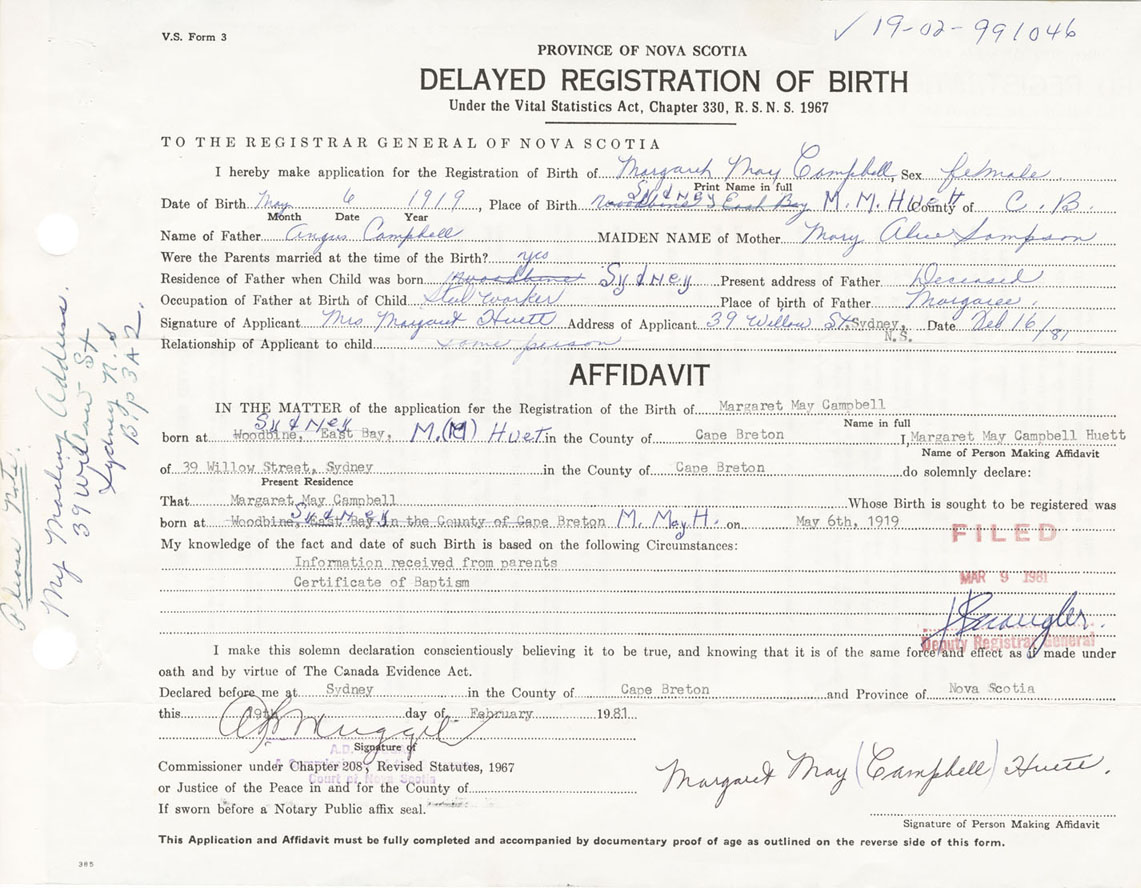 V.S. Form 3
✓ 19-02-991046
PROVINCE OF NOVA SCOTIA
DELAYED REGISTRATION OF BIRTH
Under the Vital Statistics Act, Chapter 330, R.S.N.S. 1967
TO THE REGISTRAR GENERAL OF NOVA SCOTIA
I hereby make application for the Registration of Birth of Margaret May Campbell, Sex female
Print Name in full
Sydney
Date of Birth May 6 1919, Place of Birth Woodbine, East Bay M. M. Huett County of C. B.
Month Date Year
Name of Father Angus Campbell MAIDEN NAME of Mother Mary Alice Sampson
Were the Parents married at the time of the Birth? yes
Residence of Father when Child was born Woodbine Sydney Present address of Father Deceased
Occupation of Father at Birth of Child Steel Worker Place of birth of Father Margaree.
Signature of Applicant Mrs Margaret Huett Address of Applicant 39 Willow St. Sydney, N.S. Date Feb 16/81
Relationship of Applicant to child same person
AFFIDAVIT
IN THE MATTER of the application for the Registration of Birth of Margaret May Campbell
Name in full
Sydney
born at Woodbine, East Bay, M. (M) Huet in the County of Cape Breton I, Margaret May Campbell Huett
Name of Person Making Affidavit
of 39 Willow Street, Sydney in the County of Cape Breton do solemnly declare:
Present Residence
That Margaret May Campbell Whose Birth is sought to be registered was
Sydney
born at Woodbine, East Bay in the County of Cape Breton M. May H. on May 6th, 1919
FILED
My knowledge of the fact and date of such Birth is based on the following Circumstances:
Information received from parents
MAR 9 1981
Certificate of Baptism
Deputy Registrar General
I make this solemn declaration conscientiously believing it to be true, and knowing that it is of the same force and effect as if made under
oath and by virtue of The Canada Evidence Act.
Declared before me at Sydney in the County of Cape Breton and Province of Nova Scotia
this 19th day of February 1981
Signature of
A.D.
Commissioner under Chapter 208, Revised Statutes, 1967
Court of Nova Scotia
or Justice of the Peace in and for the County of
If sworn before a Notary Public affix seal.
Margaret May (Campbell) Huett.
Signature of Person Making Affidavit
This Application and Affidavit must be fully completed and accompanied by documentary proof of age as outlined on the reverse side of this form.
385
Please Note.
My Mailing Address.
39 Willow St
Sydney N.S
B1P 3A2.